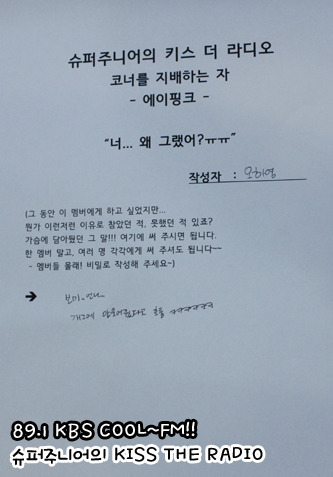 슈퍼주니어의 키스 더 라디오
코너를 지배하는 자
- 에이핑크 -
“너... 왜 그랬어?ㅠㅠ”
작성자 : 오하영
(그 동안 이 멤버에게 하고 싶었지만...
뭔가 이런저런 이유로 참았던 적, 못했던 적 있죠?
가슴에 담아뒀던 그 말!!! 여기에 써 주시면 됩니다.
한 멤버 말고, 여러 명 각각에게 써 주셔도 됩니다~~
- 멤버들 몰래! 비밀로 작성해 주세요~)
➔ 보미..언니
ㅋㅋㅋㅋㅋㅋ
89.1 KBS COOL~FM!!
슈퍼주니어의 KISS THE RADIO